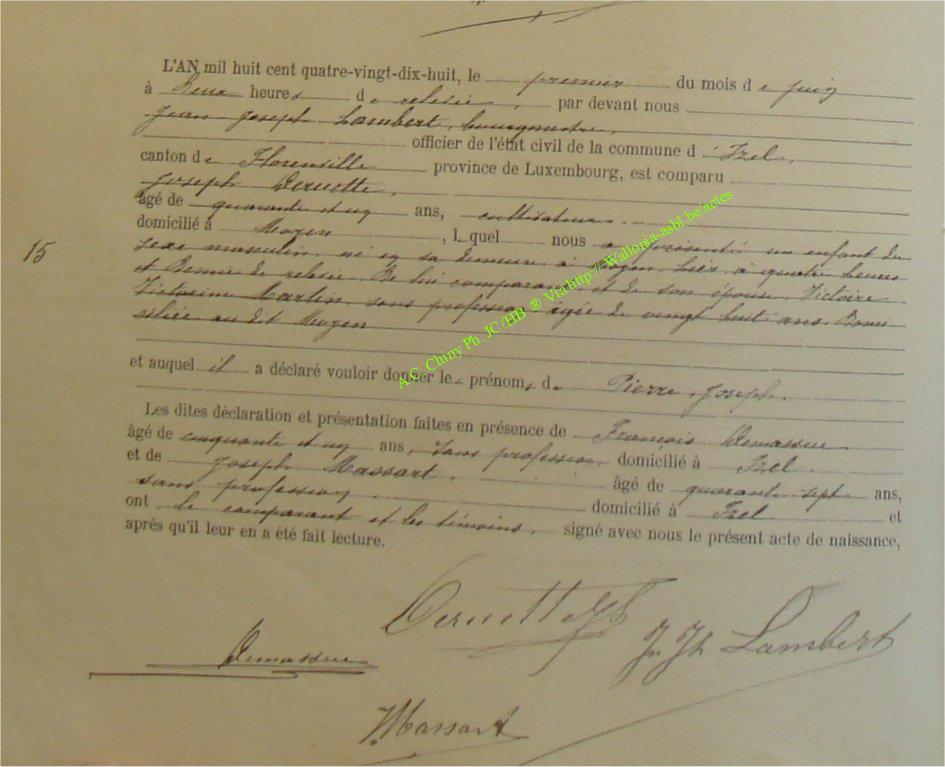 L'AN mil huit cent quatre-vingt-dix-huit, le premier du mois de juin
à Deux heures de relevée, par devant nous
Jean Joseph Lambert, bourgmestre,
officier de l'état civil de la commune d'Izel,
canton de Florenville province de Luxembourg, est comparu
Joseph Deruette,
âgé de quarante et un ans, cultivateur
domicilié à Moyen, lequel nous a présenté un enfant du
15
sexe masculin, né en sa demeure à Moyen, hier, à quatre heures
et Demie de relevée De lui comparant et de son épouse, Victoire
Victorine Martin, sans profession, agée de vingt huit ans Domi
ciliée au dit Moyen
et auquel il a déclaré vouloir donner les prénoms de Pierre, Joseph.
Les dites déclaration et présentation faites en présence de François Demasseu
âgé de cinquante et un ans, sans profession, domicilié à Izel
et de Joseph Massart, âgé de quarante sept ans,
sans profession, domicilié à Izel et
ont, le comparant et les témoins, signé avec nous le présent acte de naissance,
après qu'il leur en a été fait lecture.
Deruette Jh
J. Jh Lambert
Demasseu
Massart
A.C. Chiny Ph. JC/HB ® Via http://Wallonia-asbl.be/actes